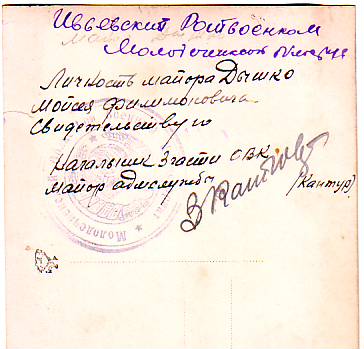 Ивьевский Райвоенком
Молодечненской области
Личность майора Дышко
Мойсея Филимоновича
Свидетельствую
Начальник 3 части ОВК
майор адм.службы
(Кантур)